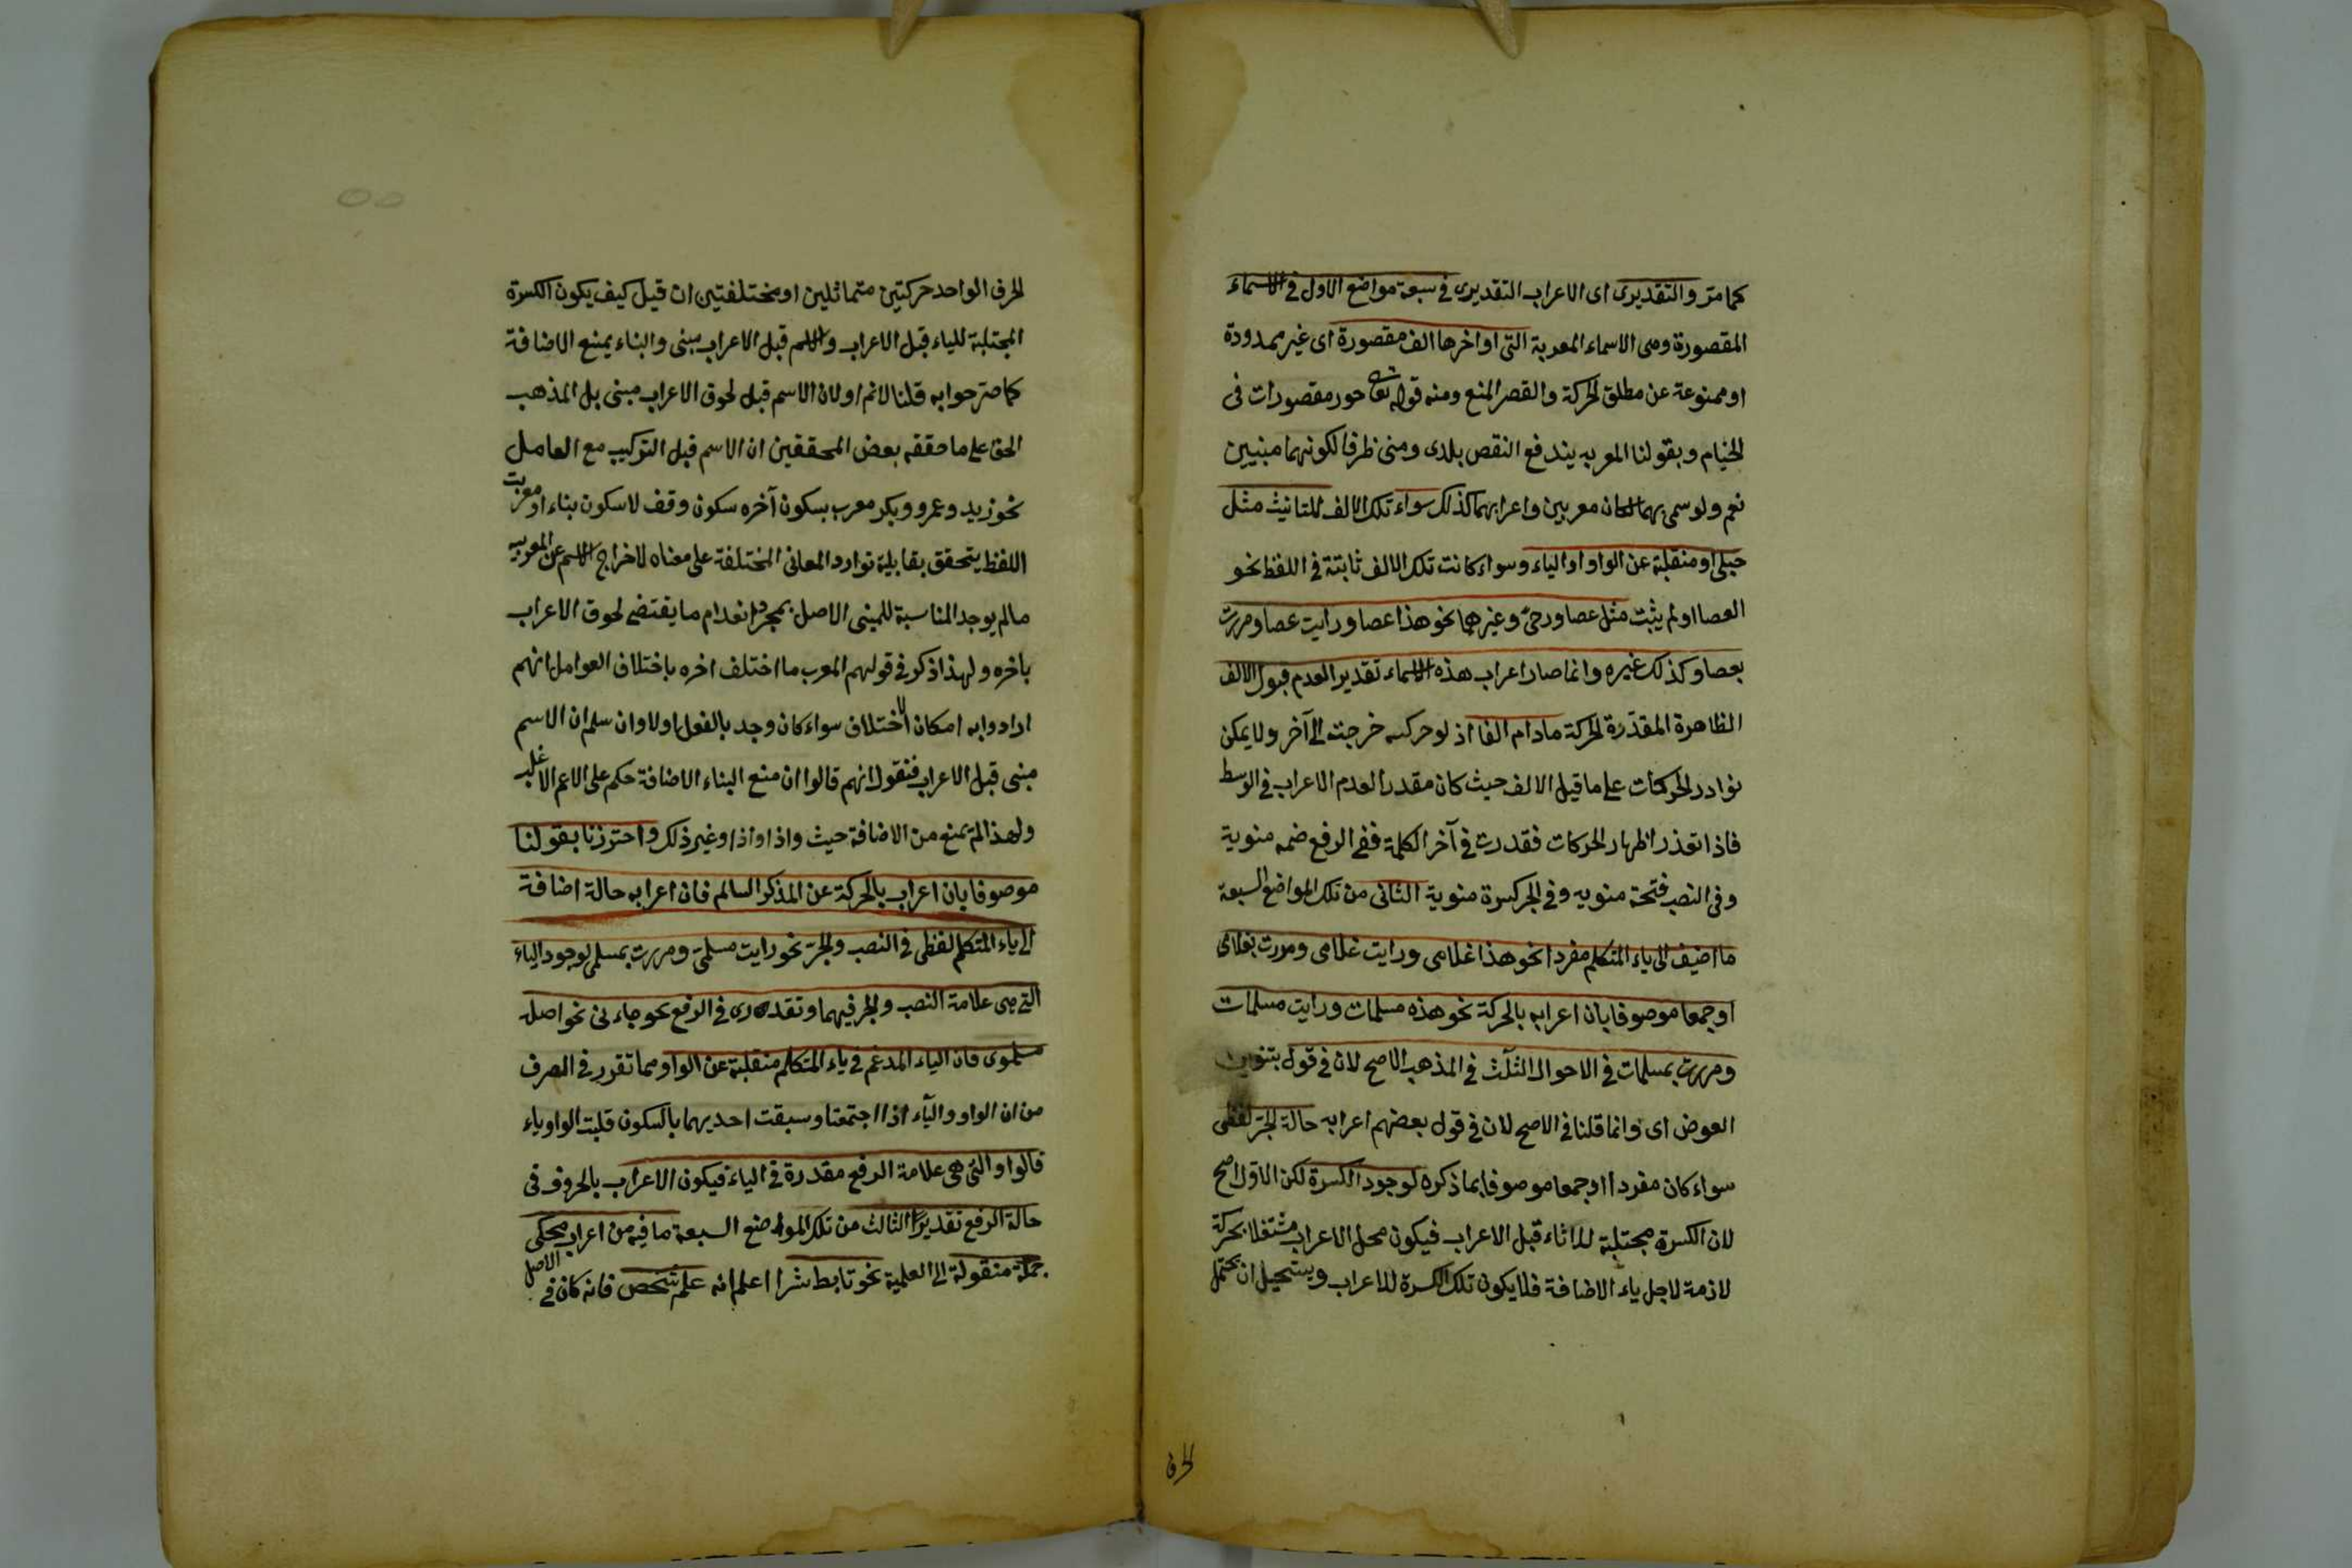 كما مر والتقديرى اى الاعراب التقديرى فى سبعة مواضع الاول فى الاسماء
المقصورة وهى الاسماء المعربة التى اواخرها الف مقصورة اى غير ممدودة
او ممنوعة عن مطلق الحركة والقصر المنع ومنه قوله تعا حور مقصورات فى
الخيام وبقولنا المعربه يندفع النقض بلدى ومنى ظرفا لكونهما مبنيين
نعم ولو سمى بهما لكان معربين واعرابهما كذلك سواء تلك الالف للتانيث مثل
حبلى او منقلبة عن الواو او الياء وسواء كانت تلك الالف ثابتة فى اللفظ نحو
العصا او لم يثبت مثل عصا ورحى وغيرهما نحو هذا عصا ورايت عصا ومررت
بعصا وكذلك غيره وانما صار اعراب هذه الاسماء تقديرا لعدم قبول الالف
الظاهرة المقدّرة الحركة مادام الفا اذ لو حركت خرجت الى آخر ولا يمكن
توارد الحركات على ما قبل الالف حيث كان مقدرا لعدم الاعراب فى الوسط
فاذا تعذر اظهار الحركات فقدرت فى آخر الكلمة ففى الرفع ضمه منوية
وفى النصب فتحة منويه وفى الجر كسرة منوية الثانى من تلك المواضع السبعة
ما اضيف الى ياء المتكلم مفردا نحو هذا غلامى ورايت غلامى ومررت بغلامى
او جمعا موصوفا بان اعرابه بالحركة نحو هذه مسلمات ورايت مسلمات
ومررت بمسلمات فى الاحوال الثلث فى المذهب الاصح لان فى قول بتنوين
العوض اى وانما قلنا فى الاصح لان فى قول بعضهم اعرابه حالة الجر لفظى
سواء كان مفردا او جمعا موصوفا بما ذكره لوجود الكسرة لكن الاوّل اصح
لان الكسرة مجتلبة قبل الاعراب فيكون محل الاعراب مشتغلا بحركة
لازمة لاجل ياء الاضافة فلا يكون تلك الكسرة للاعراب ويستحيل ان يحتمل
الحرف
الحرف الواحد حركتين متماثلين او مختلفتين ان قيل كيف يكون الكسرة
المجتلبة للياء قبل الاعراب والاسم قبل الاعراب مبنى والبناء يمنع الاضافة
كما مر جوابه قلنا لا نم اولا ان الاسم قبل لحوق الاعراب مبنى بل المذهب
الحق على ما حققه بعض المحققين ان الاسم قبل التركيب مع العامل
نحو زيد وعمرو وبكر معرب بسكون آخره سكون وقف لا سكون بناء او معربت
اللفظ يتحقق بقابلية توارد المعانى المختلفة على معناه لا خراج الاسم عن المعربيه
مالم يوجد المناسبة للمبنى الاصل بمجرد انعدام ما يقتضى لحوق الاعراب
باخره ولهذا ذكر فى قولهم المعرب ما اختلف اخره باختلاف العوامل انهم
ارادوا به امكان الاختلاف سواء كان وجد بالفعل اولا وان سلم ان الاسم
مبنى قبل الاعراب فنقول انهم قالوا ان منع البناء الاضافة حكم على الاعم الاغلب
ولهذا لم يمنع من الاضافة حيث واذ او اذا وغير ذلك واحترزنا بقولنا
موصوفا بان اعرابه بالحركة عن المذكر السالم فان اعرابه حالة اضافة
الى ياء المتكلم لفظى فى النصب والجرّ نحو رايت مسلمىّ ومررت بمسلمى لوجود الياء
التى هى علامة النصب والجر فيهما وتقديرى فى الرفع نحو جاءنى نحو اصله
مسلموى فان الياء المدغم فى ياء المتكلم منقلبة عن الواو مما تقرر فى الصرف
من ان الواو والياء اذا اجتمعتا وسبقت احديهما بالسكون قلبت الواو ياء
فالواو التى هى علامة الرفع مقدرة فى الياء فيكون الاعراب بالحروف فى
حالة الرفع تقديرًا الثالث من تلك المواضع السبعة ما فيه من اعراب محكى
جملة منقولة الى العلمية نحو تابط شرا اعلم انه علم شخص فانه كان فى الاصل